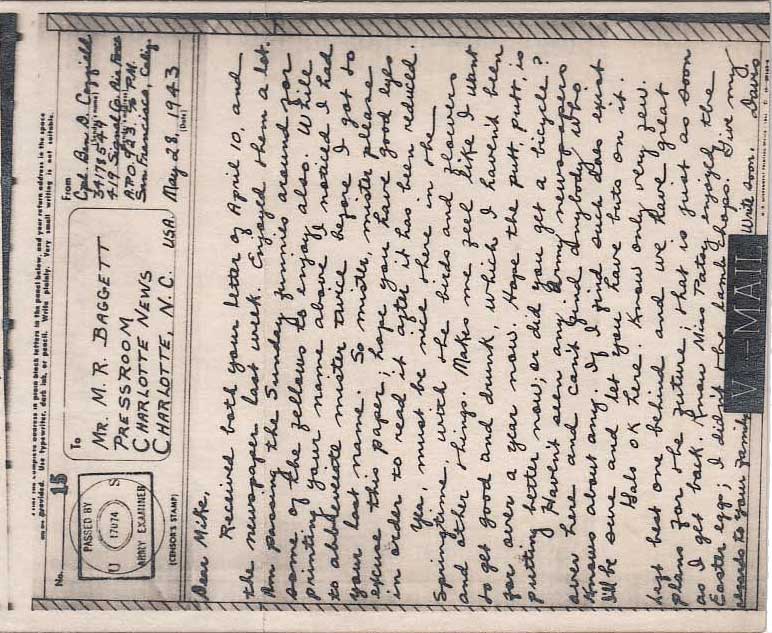 No. 15
PASSED BY
U S
17074
ARMY EXAMINER
(CENSOR'S STAMP)
address in plain block letters in the panel below, and your return address in the space
provided. Use typewriter, dark ink, or pencil. Write plainly. Very small writing is not suitable.
To
MR. M. R. BAGGETT
PRESSROOM
CHARLOTTE NEWS
CHARLOTTE, N.C.
USA.
From
Cpl. Ben D.
34178544
419 Signal Co. Air Force
APO 923, % P.M.
San Francisco, Calif.
May 28, 1943
(Date)
Dear Mike,
Received both your letter of April 10, and
the newspaper last week. Enjoyed them a lot.
Am passing the Sunday funnies around for
some of the fellows to enjoy also. While
printing your name above I noticed I had
to abbdeveate mister twice before I got to
your last name. So mister, mister please
excuse this paper; hope you have good eyes
in order to read it after it has been reduced.
Yea, must be nice there in the
Springtime, with the buds and flowers
and other things. Makes me feel like I want
to get good and drunk, which I haven't been
for over a year now. Hope the putt, putt, is
putting better now, or did you get a bicycle?
Haven't seen any Army newspapers
over here and can't find anybody who
knows about any. If I find such does exist
I'll be sure and let you have buts on it.
Gals ok here. Know only very few.
Kept best one behind and we have great
plans for the future; that is just as soon
as I get back. Know Miss Patsy enjoyed the
Easter eggs; I didn't the lamb chops. Give my
regards to your family
Write soon, Davis
V···—MAIL